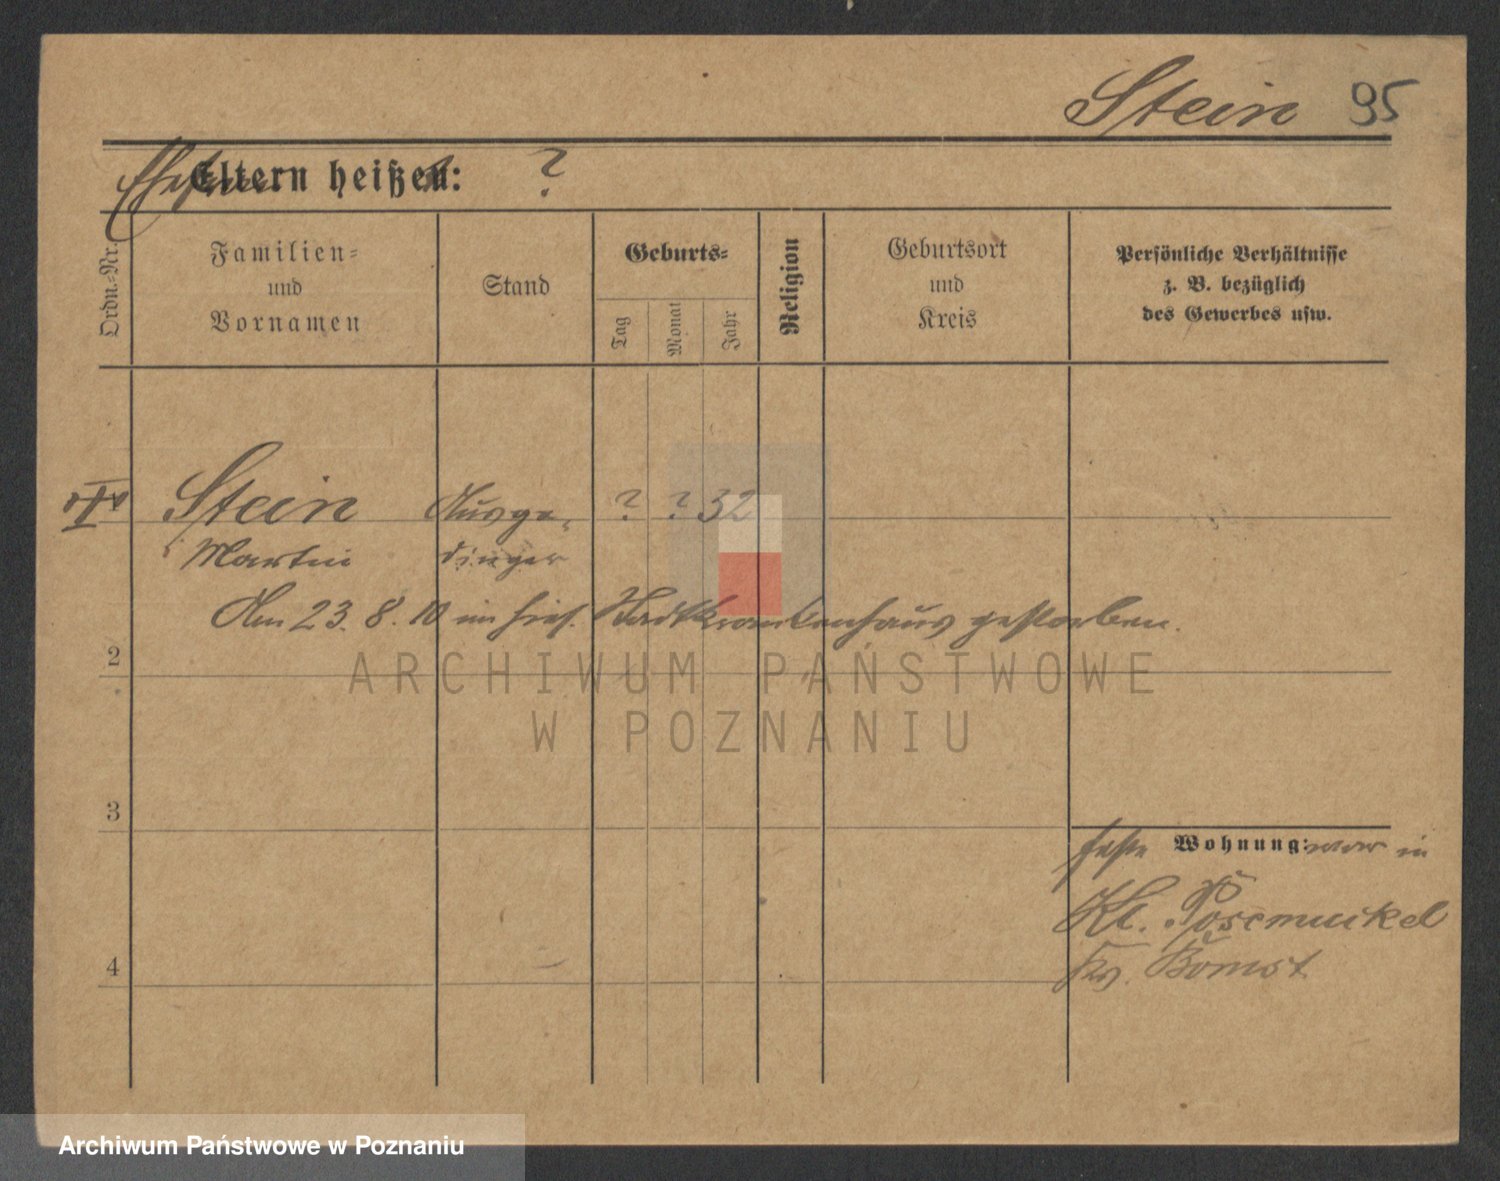 Stein 95
Ehefrau
Eltern heißen: ?
Ordn.-Nr.
Familien-
und
Vornamen
Stand
Geburts-
Tag
Monat
Jahr
Religion
Geburtsort
und
Kreis
Persönliche Verhältnisse
z. B. bezüglich
des Gewerbes usw.
Stein Ausge- ? ? 32
Martin dinger
Am 23. 8. 10 im hies. Stadtkrankenhaus gestorben.
2
ARCHIWUM PAŃSTWOWE
W POZNANIU
3
feste Wohnung: war in
Kl. Posemuckel
Kr. Bomst
4
Archiwum Państwowe w Poznaniu